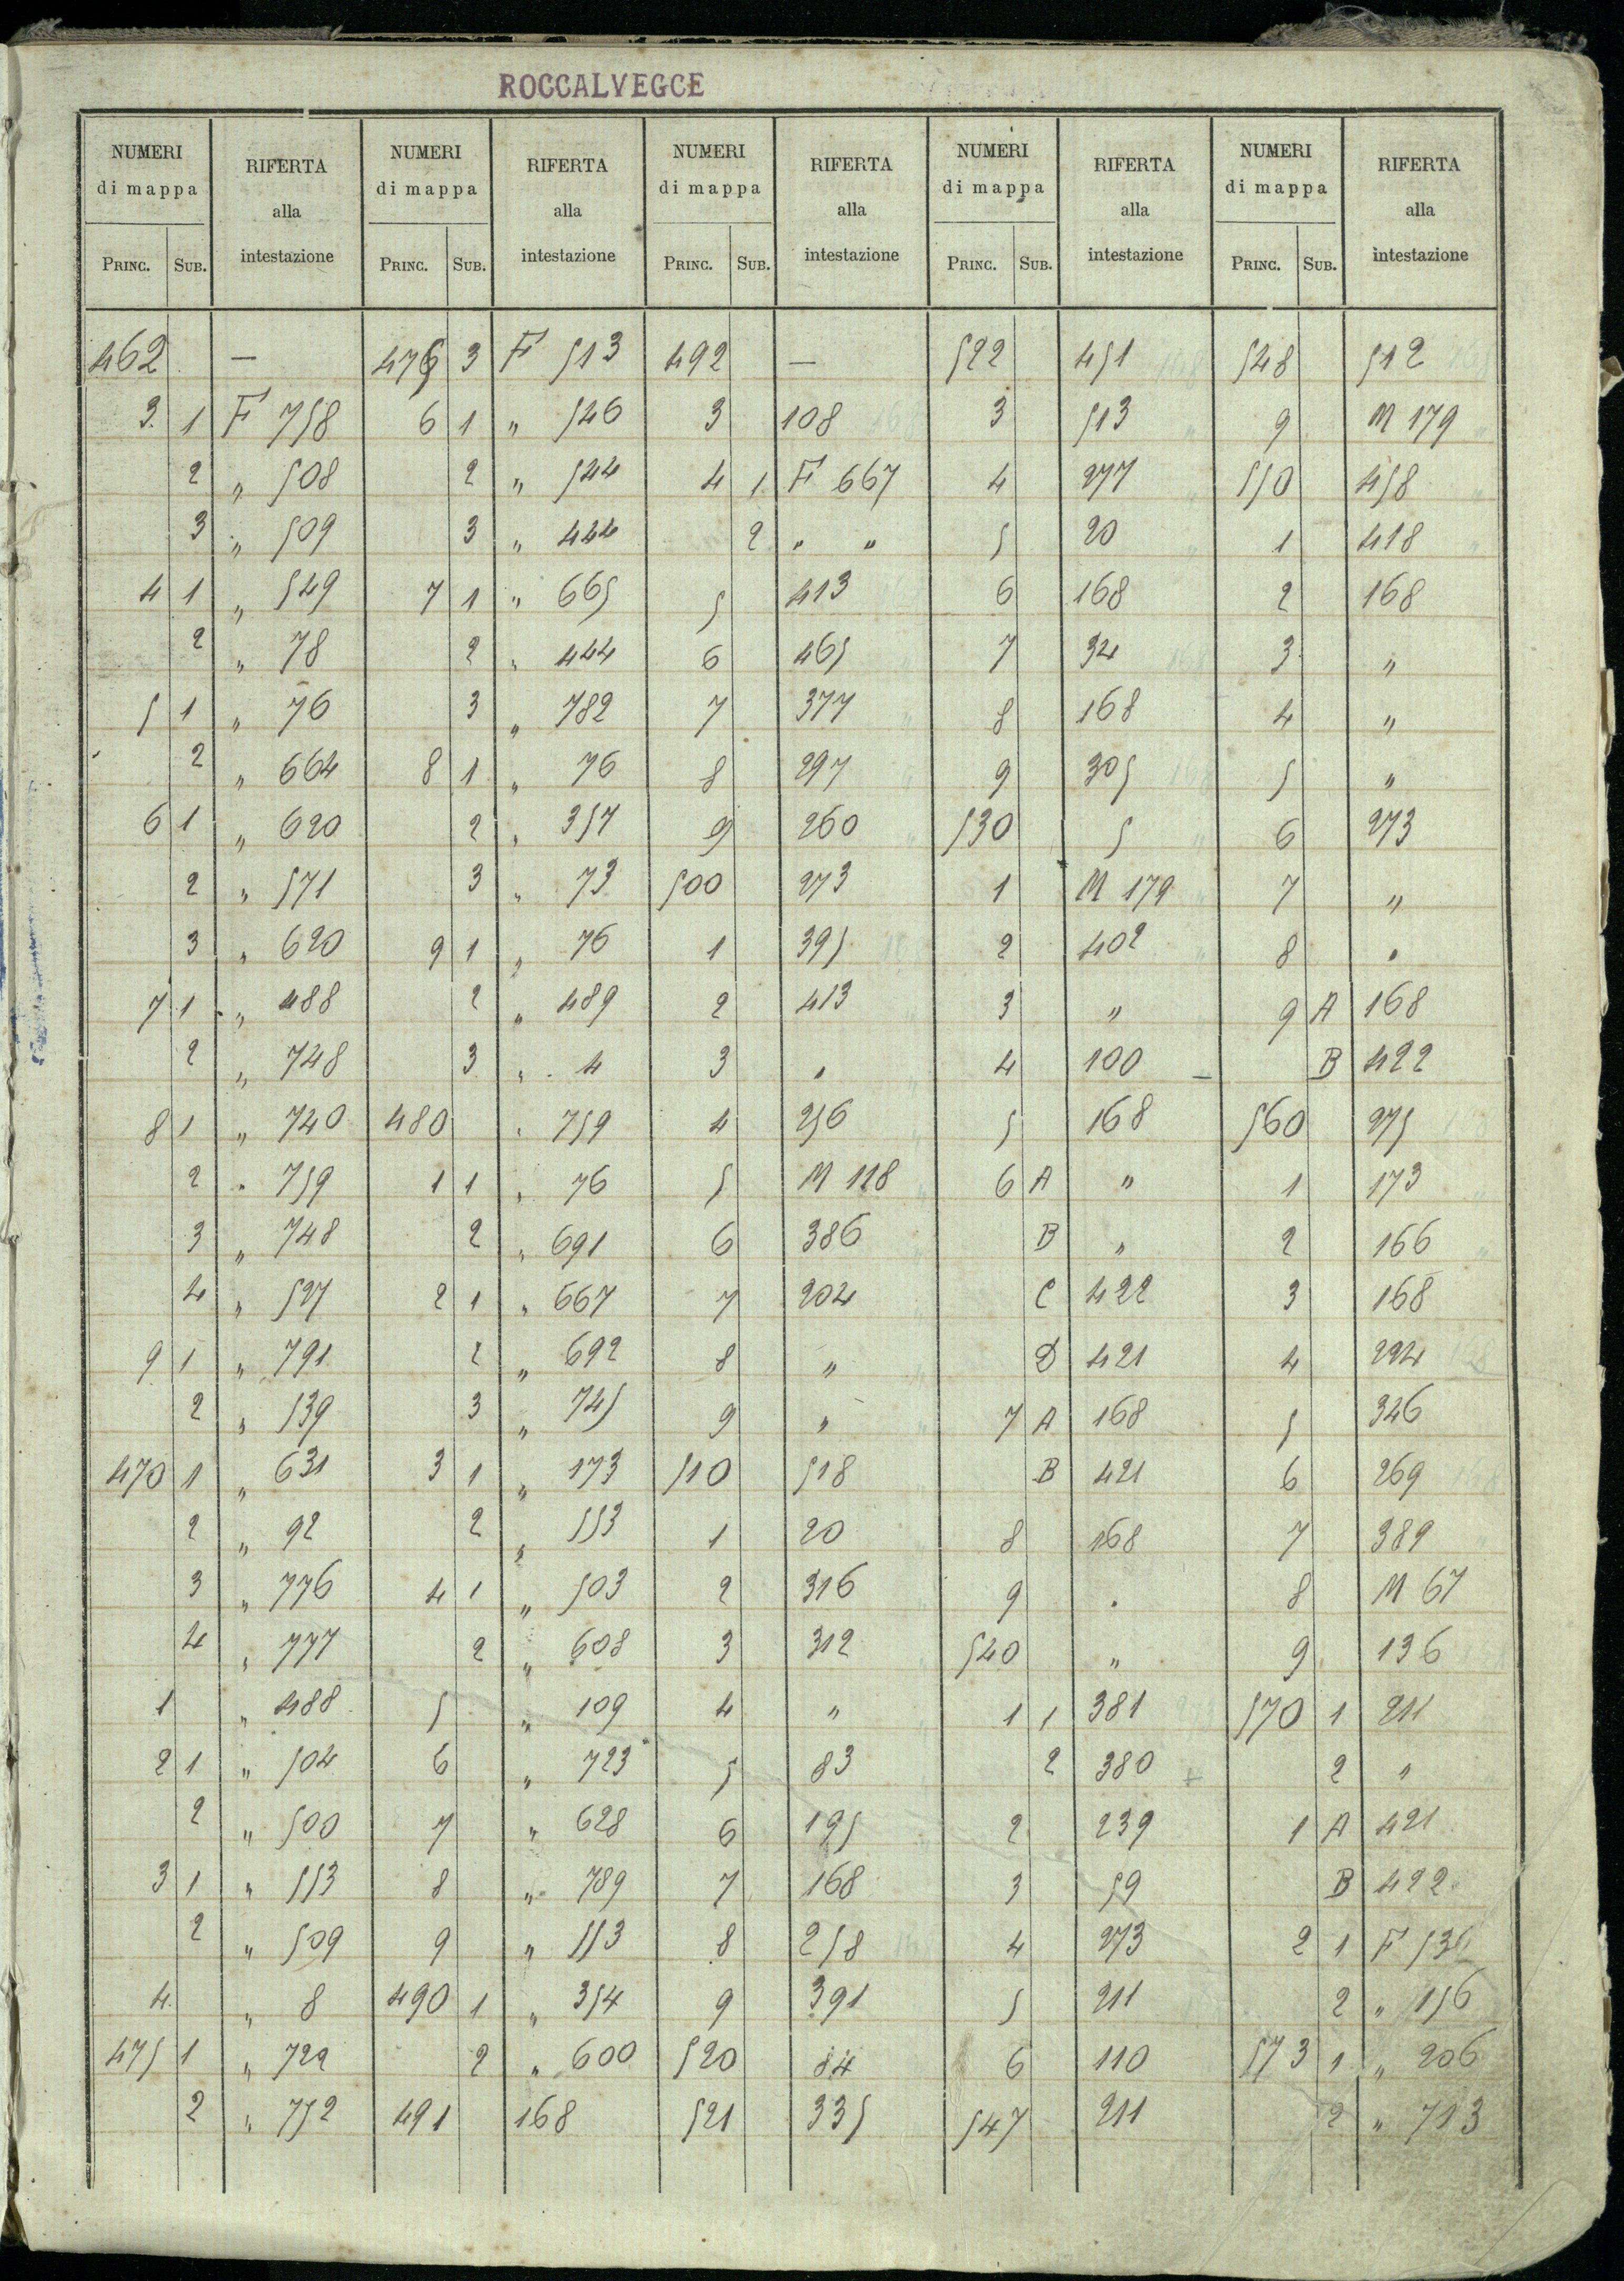 ROCCALVEGCE
NUMERI di mappa RIFERTA alla intestazione NUMERI di mappa RIFERTA alla intestazione NUMERI di mappa RIFERTA alla intestazione NUMERI di mappa RIFERTA alla intestazione NUMERI di mappa RIFERTA alla intestazione
PRINC. SUB. PRINC. SUB. PRINC. SUB. PRINC. SUB. PRINC. SUB.
462 — 475 3 F 513 492 — 522 451 548 512
3 1 F 758 6 1 " 546 3 108 3 513 9 M 179
2 " 508 2 " 544 4 1 F 667 4 277 550 458
3 " 509 3 " 444 2 " " 5 20 1 418
4 1 " 549 7 1 " 665 5 413 6 168 2 168
2 " 78 2 " 444 6 465 7 34 3 "
5 1 " 76 3 " 782 7 377 8 168 4 "
2 " 664 8 1 " 76 8 297 9 305 5 "
6 1 " 620 2 " 357 9 260 530 5 6 273
2 " 571 3 " 73 500 273 1 M 179 7 "
3 " 620 9 1 " 76 1 395 2 402 8 "
7 1 " 488 2 " 489 2 413 3 " 9 A 168
2 " 748 3 " 4 3 " 4 100 — B 422
8 1 " 740 480 " 759 4 256 5 168 560 275
2 " 759 1 1 " 76 5 M 118 6 A " 1 173
3 " 748 2 " 691 6 386 B " 2 166
4 " 527 2 1 " 667 7 204 C 422 3 168
9 1 " 791 2 " 692 8 " D 421 4 224
2 " 539 3 " 745 9 " 7 A 168 5 346
470 1 " 631 3 1 " 173 510 518 B 421 6 269
2 " 92 2 " 553 1 20 8 168 7 389
3 " 776 4 1 " 503 2 316 9 " 8 M 67
4 " 777 2 " 608 3 312 540 " 9 136
1 " 488 5 " 109 4 " 1 1 381 570 1 211
2 1 " 504 6 " 723 5 83 2 380 + 2 "
2 " 500 7 " 628 6 195 2 239 1 A 421
3 1 " 553 8 " 789 7 168 3 59 B 422
2 " 509 9 " 553 8 258 4 273 2 1 F
4 " 8 490 1 " 354 9 391 5 211 2 " 156
475 1 " 722 2 " 600 520 84 6 110 573 1 " 206
2 " 752 491 168 521 335 547 211 2 " 713